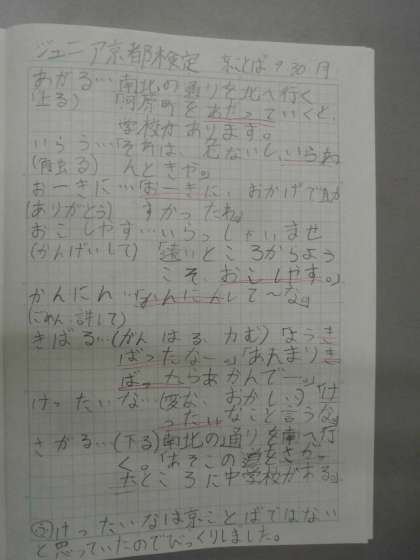 ジュニア京都検定 京ことば 9月30日
あがる…南北の通りを北へ行く
(上る) 「河原町をあがっていくと、
学校があります。
いらう…「それは、危ないし、いらわ
(触る) んときや。」
おーきに…「おーきに、おかげで助
(ありがとう) すかったわ。」
おこしやす…いらっしゃいませ
(かんげいして) 「遠いところからよう
こそ、おこしやす。」
かんにん…「かんにんして〜な。」
(ごめん・許して)
きばる…(がんばる、力む)「ようき
ばったなー。」「あんまりき
ばったらあかんでー。」
けったいな…(変な、おかしい)「け
ったいなこと言うな。」
さがる…(下る)南北の通りを南へ行
く。「あそこの道をさがっ
たところに中学校がある。」
けったいなは京ことばではない
と思っていたのでびっくりしました。